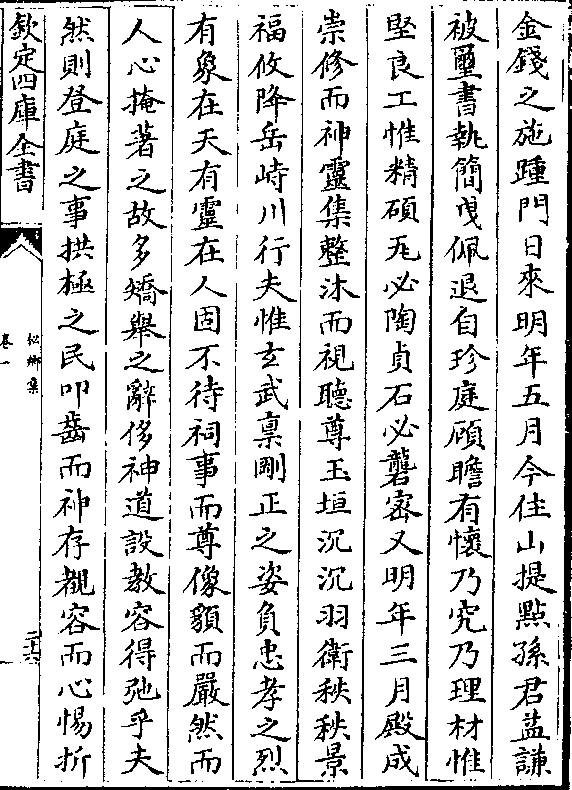 金錢之施踵門日來明年五月今住山提點孫君益謙
被璽書執簡曵佩退自珍庭顧瞻有懷乃究乃理材惟
堅良工惟精碩瓦必陶貞石必礱宻又明年三月殿成
崇修而神靈集整沐而視聽尊玉垣沉沉羽衛秩秩景
福攸降岳峙川行夫惟玄武稟剛正之姿負忠孝之烈
有象在天有靈在人固不待祠事而尊像貌而嚴然而
人心掩著之故多矯舉之辭侈神道設教容得弛乎夫
然則登庭之事拱極之民叩齒而神存覩容而心惕折
欽定四庫全書
松鄉集
卷一
二十六